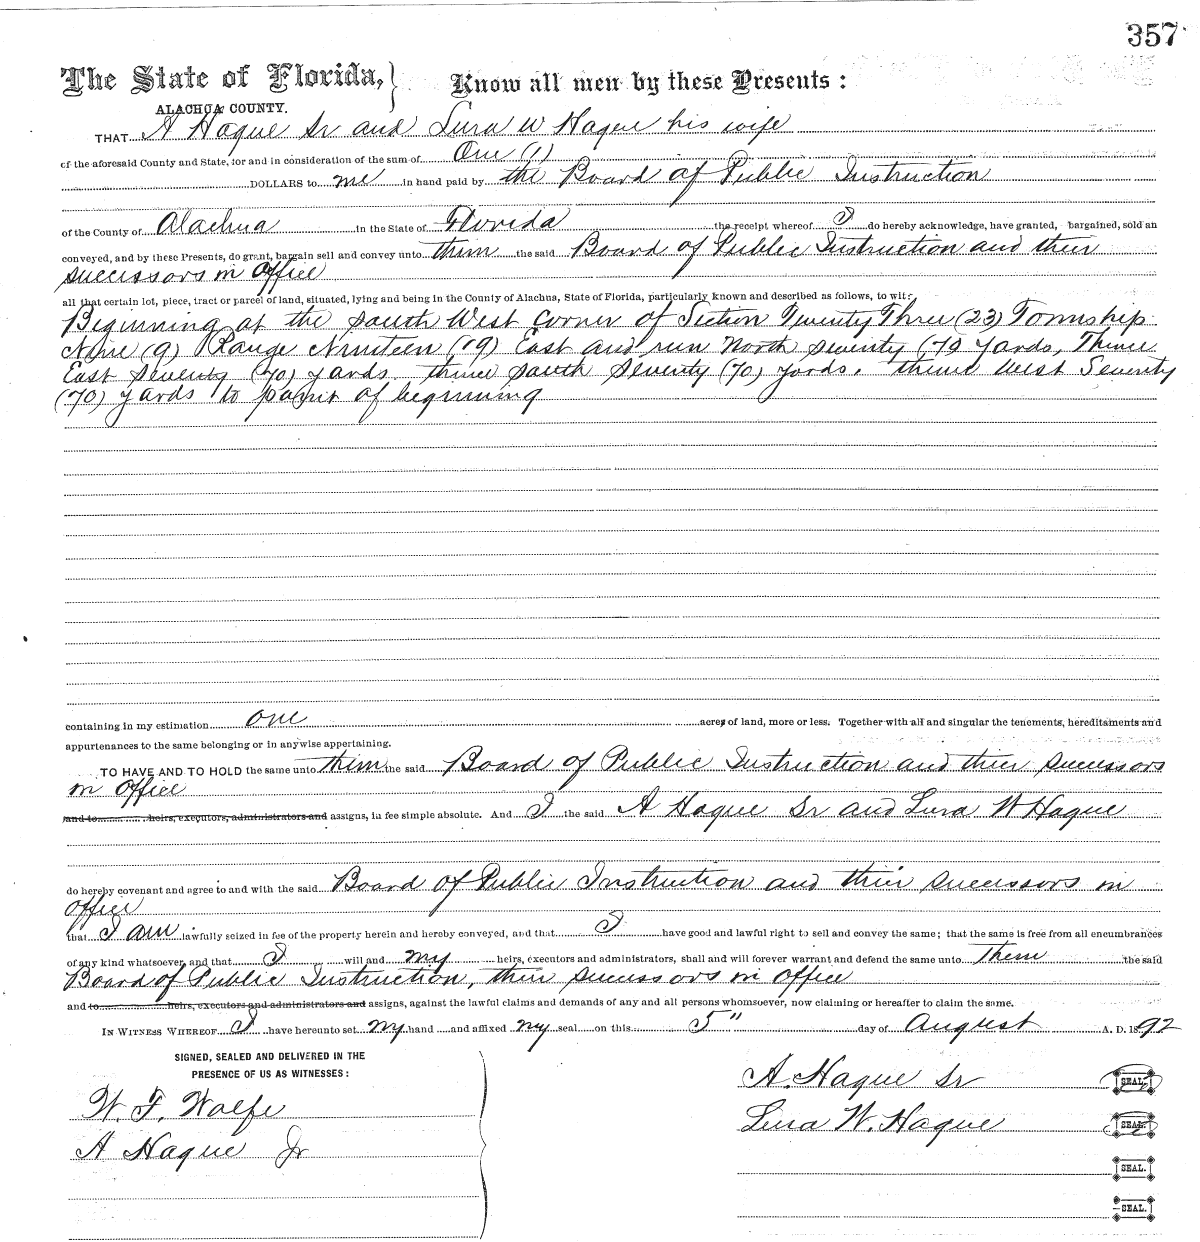 357
The State of Florida, } Know all men by these Presents :
ALACHUA COUNTY.
THAT A Hague Sr and Lura W Hague his wife
of the aforesaid County and State, for and in consideration of the sum of One (1)
DOLLARS to me in hand paid by the Board of Public Instruction
of the County of Alachua in the State of Florida the receipt whereof I do hereby acknowledge, have granted, bargained, sold an
conveyed, and by these Presents, do grant, bargain sell and convey unto them the said Board of Public Instruction and their
successors in office
all that certain lot, piece, tract or parcel of land, situated, lying and being in the County of Alachua, State of Florida, particularly known and described as follows, to wit:
Beginning at the south West corner of Section Twenty Three (23) Township
Nine (9) Range Nineteen (19) East and run North seventy (70 yards, Thence
East seventy (70) yards thence south seventy (70) yards. thence west Seventy
(70) yards to point of beginning
containing in my estimation one acres of land, more or less. Together with all and singular the tenements, hereditaments and
appurtenances to the same belonging or in anywise appertaining.
TO HAVE AND TO HOLD the same unto them the said Board of Public Instruction and their successors
in office
and to heirs, executors, administrators and assigns, in fee simple absolute. And I the said A Hague Sr and Lura W Hague
do hereby covenant and agree to and with the said Board of Public Instruction and their successors in
office
that I am lawfully seized in fee of the property herein and hereby conveyed, and that I have good and lawful right to sell and convey the same; that the same is free from all encumbrances
of any kind whatsoever, and that I will and my heirs, executors and administrators, shall and will forever warrant and defend the same unto Them the said
Board of Public Instruction, their successors in office
and to heirs, executors and administrators and assigns, against the lawful claims and demands of any and all persons whomsoever, now claiming or hereafter to claim the same.
IN WITNESS WHEREOF I have hereunto set my hand and affixed my seal on this 5" day of August A. D. 1892
SIGNED, SEALED AND DELIVERED IN THE
PRESENCE OF US AS WITNESSES:
A. Hague Sr SEAL.
W. F. Wolfe
Lura W. Hague SEAL.
A Hague Jr
SEAL.
SEAL.